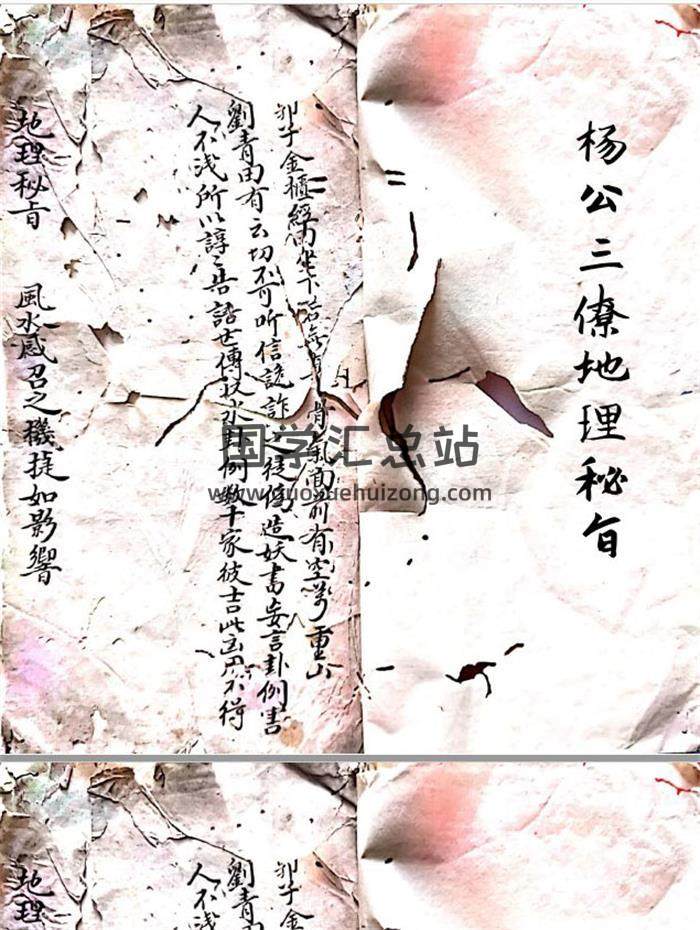 杨公三僚地理秘旨
子金櫃經曰坐下若無 骨氣面前有空 重山
劉青田有云切不可听信詭詐之徒偽造妖書妄言卦例害
人不浅所以諄〻告 世傳 水卦例数十家彼吉此凶用不得
地理秘旨 風水感召之機捷如影響
国学汇总站
www.guoxuehuizong.com
子金
劉青田
人不浅
地理